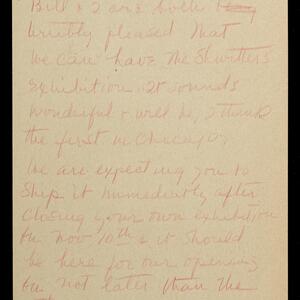 Bill & I are both
terribly pleased that
we can have the Schwitters
exhibition. It sounds
wonderful & will be, I think
the first in Chicago,
We are expecting you to
ship it immediately after
closing your own exhibition
on Nov 10th & it should
be here for our opening
on not later than the